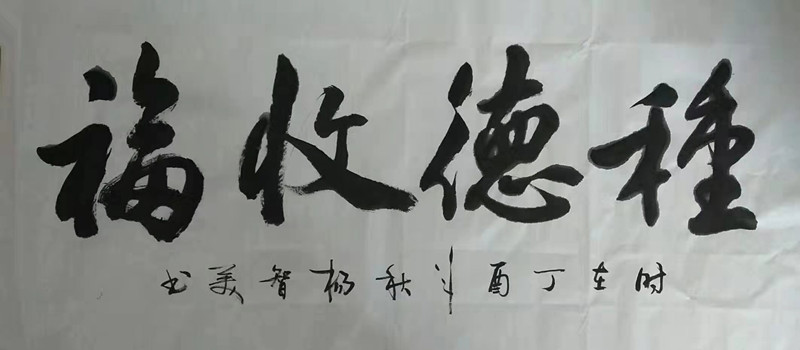 種德收福
时在丁酉年秋杨智美书